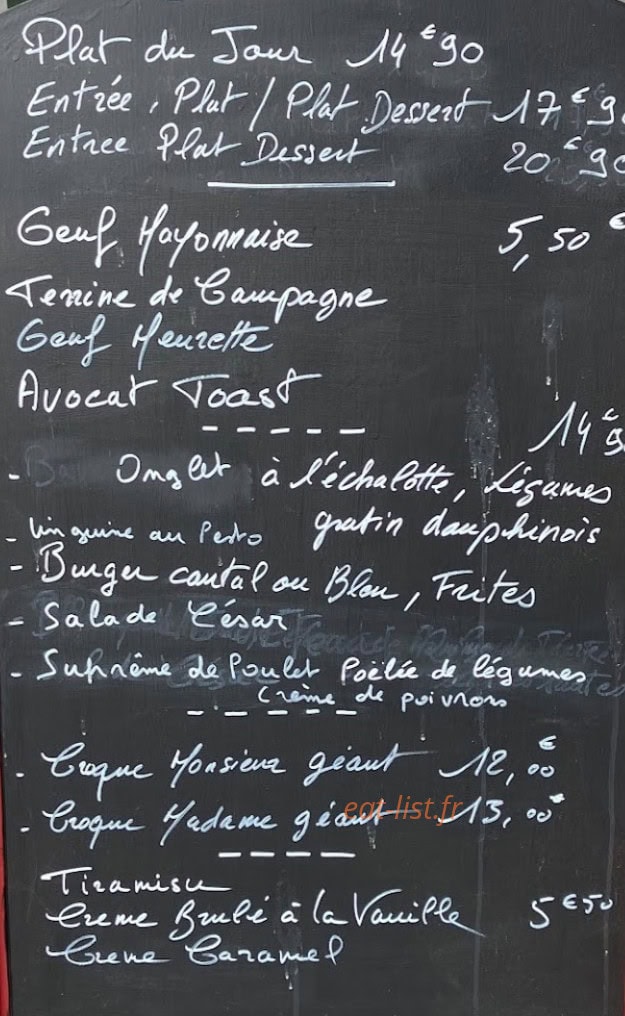 Plat du Jour 14€90
Entrée, Plat / Plat Dessert 17€90
Entree Plat Dessert 20€90
Oeuf Mayonnaise 5,50 €
Terrine de Campagne
Oeuf Meurette
Avocat Toast
14€90
- Onglet à l'échalotte, Légumes
gratin dauphinois
- Linguine au Pesto
- Burger cantal ou Bleu, Frites
- Salade César
- Suprême de Poulet Poëlée de légumes
Crème de poivrons
- Croque Monsieur géant 12,00€
- Croque Madame géant 13,00€
eat-list.fr
Tiramisu
Creme Brulé à la Vanille 5€50
Creme Caramel